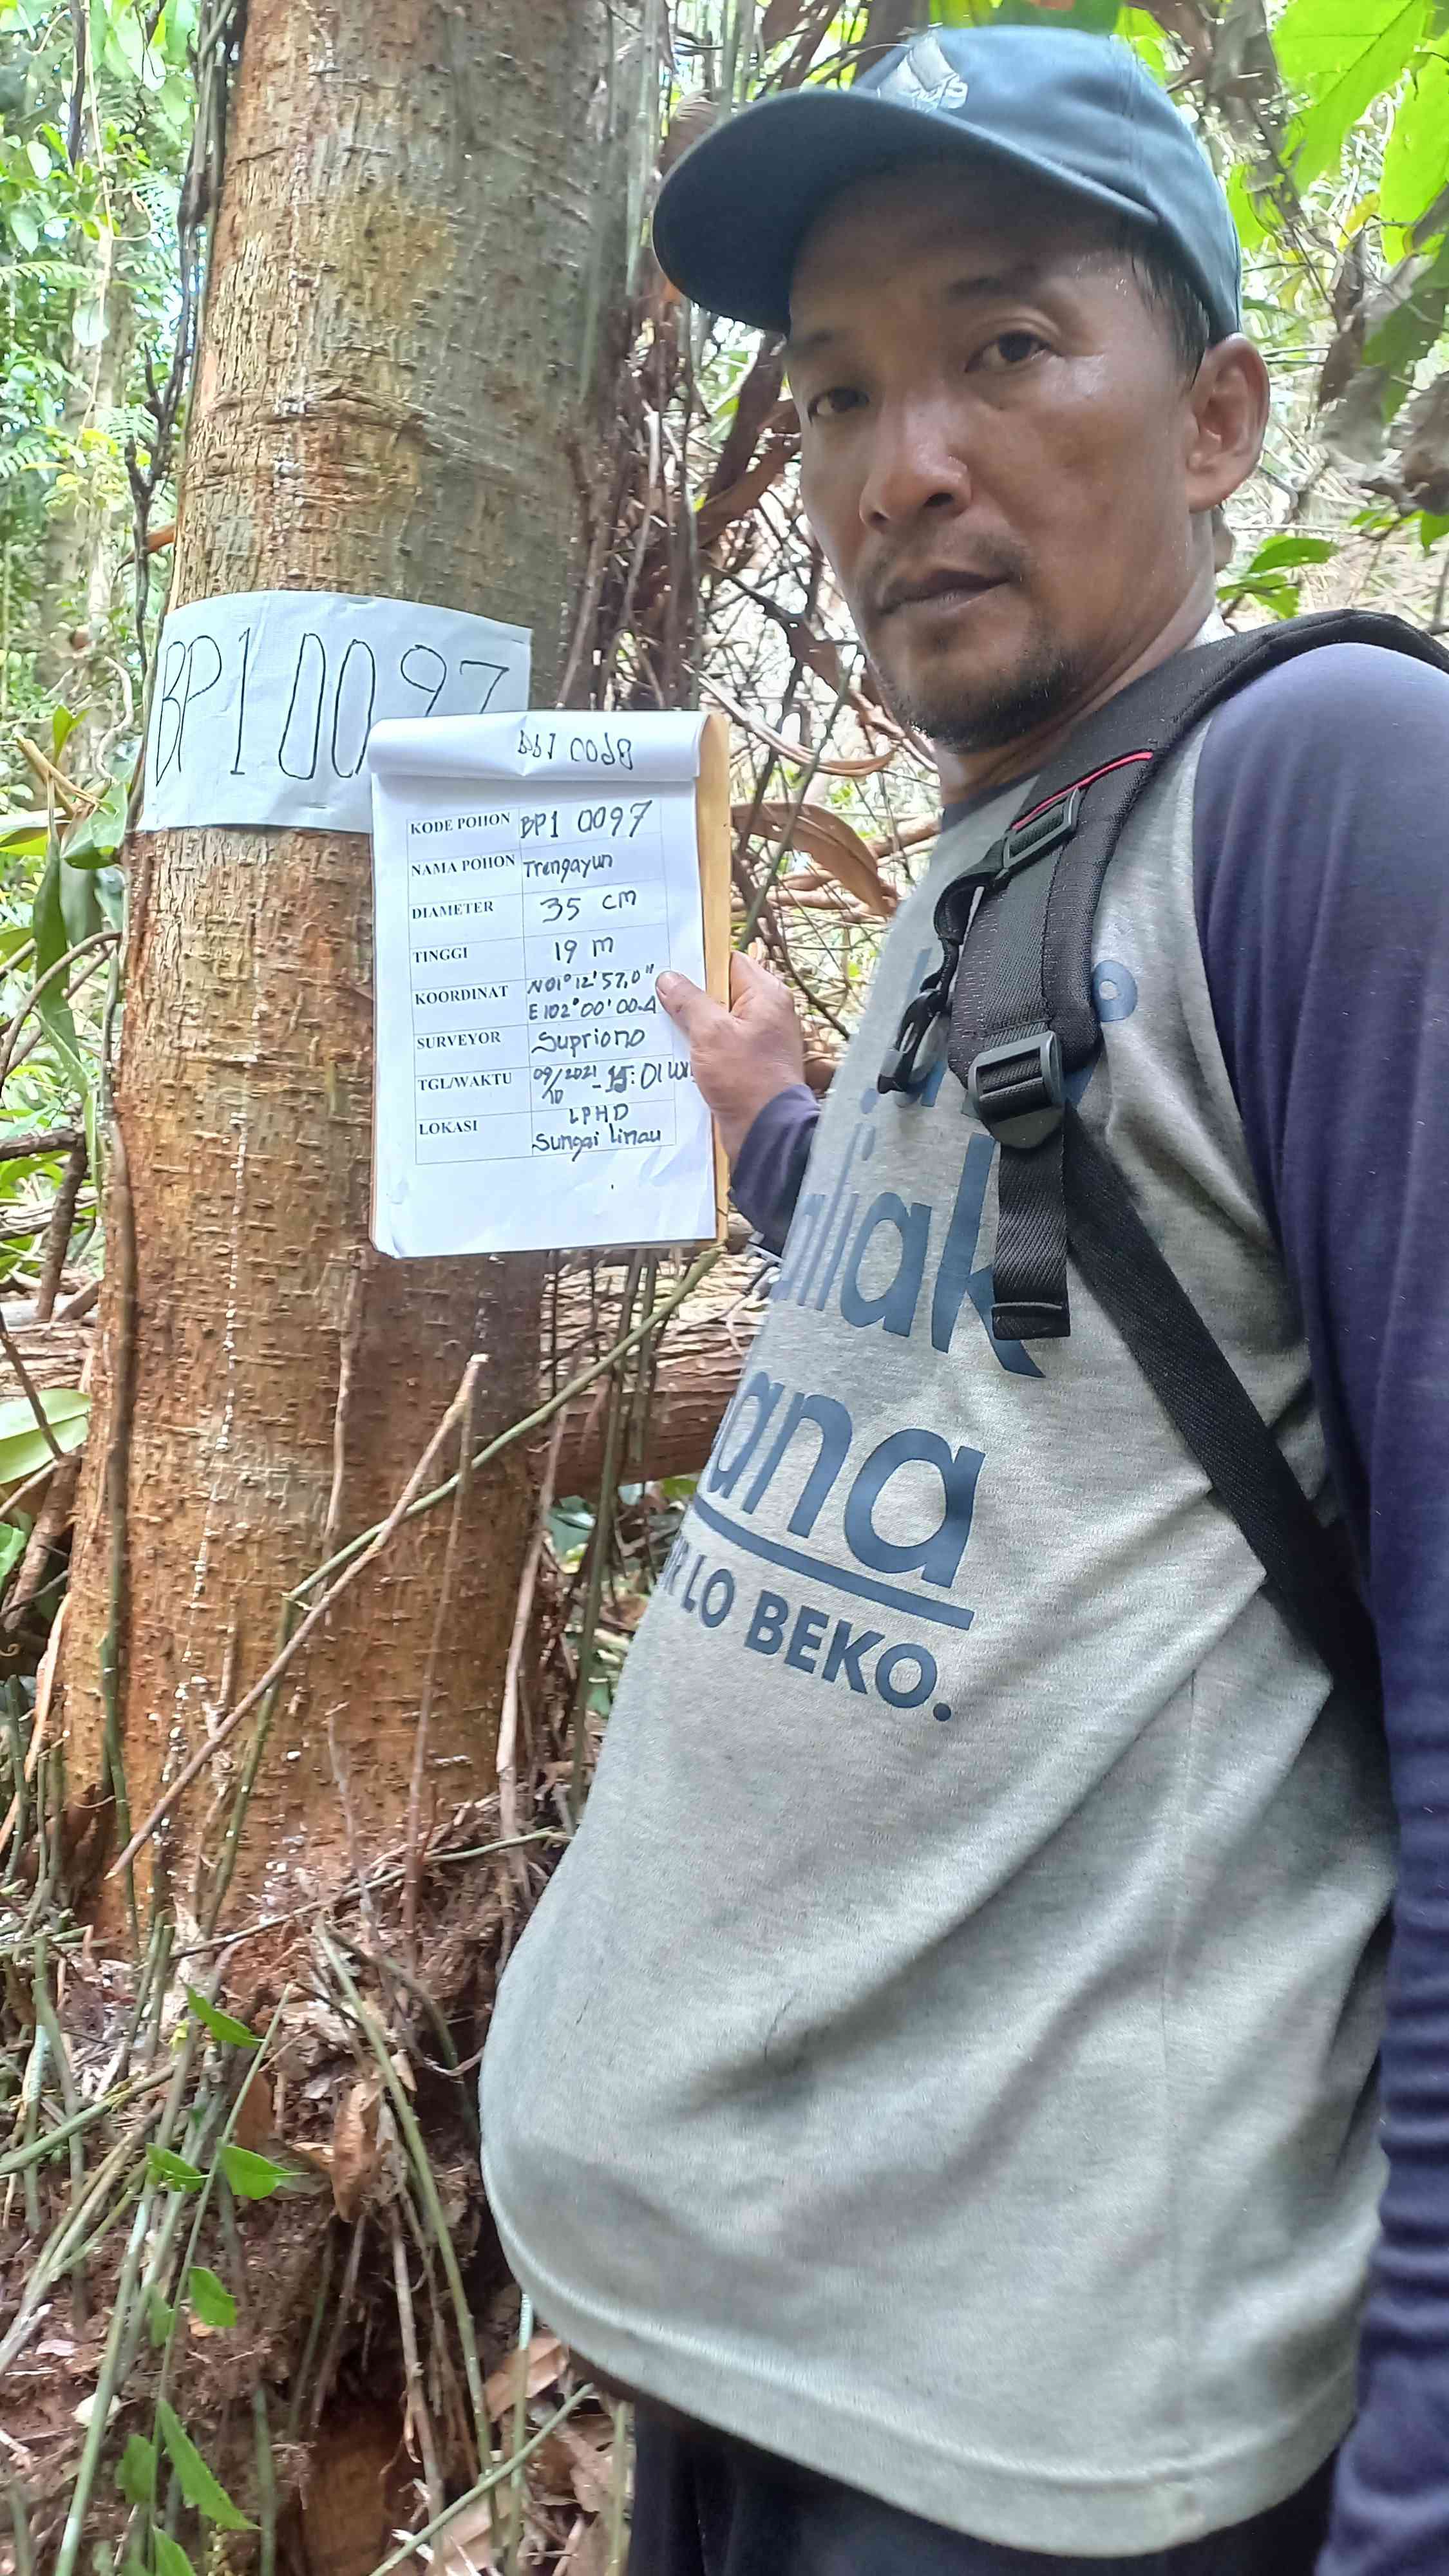 BP1 0097
KODE POHON BP1 0097
NAMA POHON Trengayun
DIAMETER 35 cm
TINGGI 19 m
KOORDINAT N 01° 12' 57,0"
E 102° 00' 00.4
SURVEYOR Supriono
TGL/WAKTU 09/10/2021 - 15:01 WI
LOKASI LPHD
Sungai Limau
liak
ana
LO BEKO.